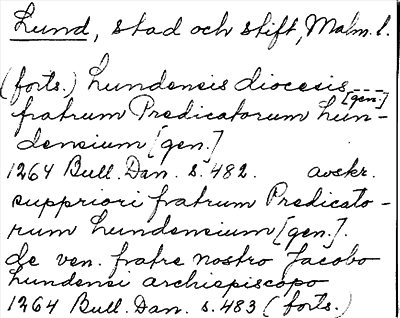 Lund, stad och stift, Malm. l.
(forts.) Lundensis diocesis [gen.]
fratrum Predicatorum Lun-
densium [gen.]
1264 Bull. Dan. s. 482. avskr.
suppriori fratrum Predicato-
rum Lundensium [gen.].
de ven. fratre nostro Jacobo
Lundensi archiepiscopo
1264 Bull. Dan. s. 483 (forts.)